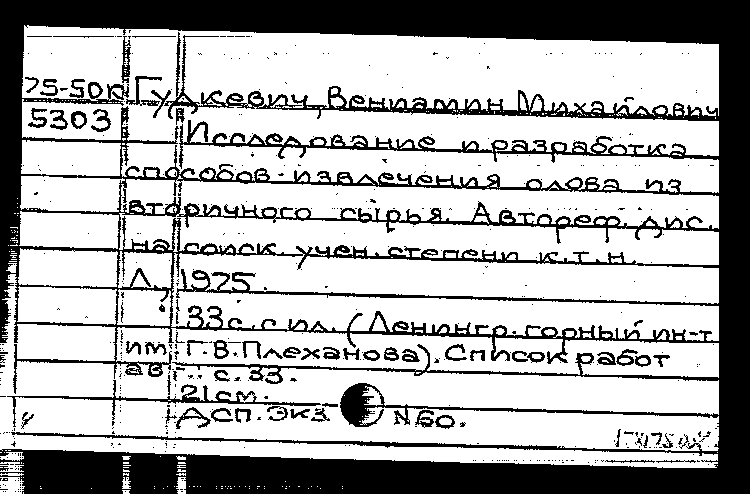 75-50к Гудкевич, Вениамин Михайлович
5303 Исследование и разработка
способов извлечения олова из
вторичного сырья. Автореф. дис.
на соиск. учен. степени к.т.н.
Л., 1975.
33с. с ил. (Ленингр. горный ин-т
им. Г.В. Плеханова). Список работ
авт.: с. 33.
21см.
ДСП. Экз. N60.